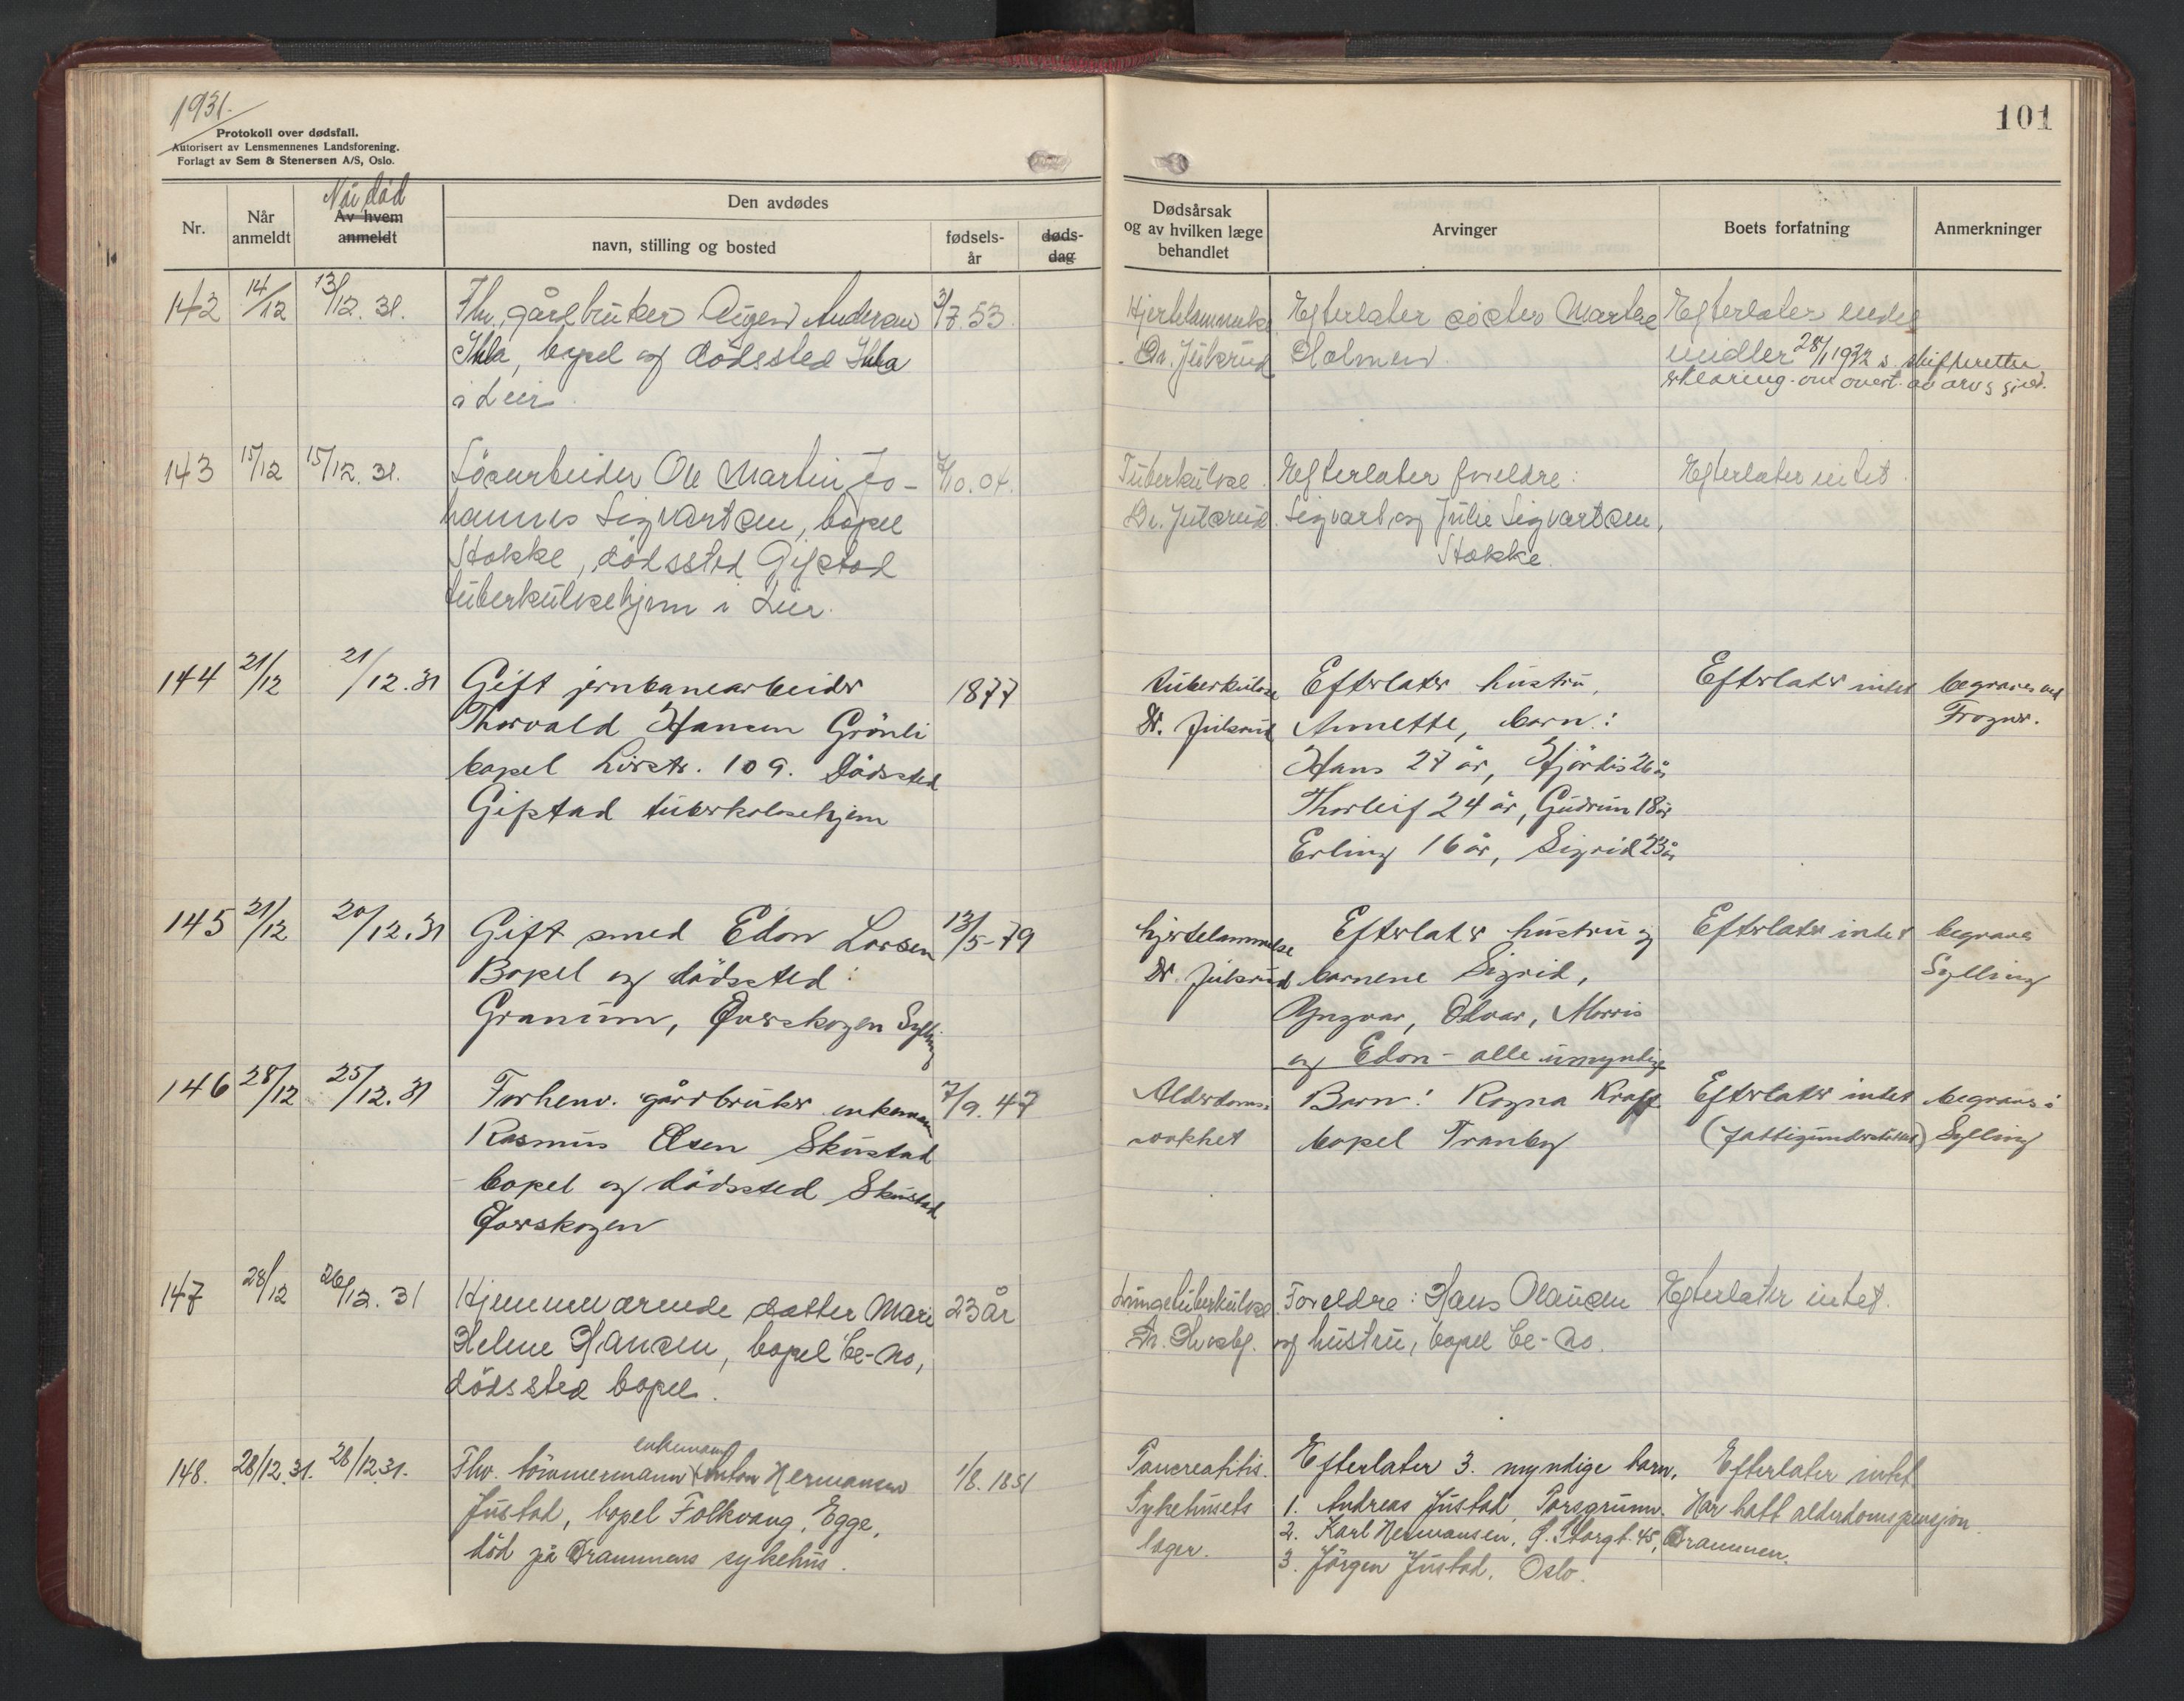 1931.
Protokoll over dødsfall.
Autorisert av Lensmennenes Landsforening.
Forlagt av Sem & Stenersen A/S, Oslo.
101
Nr.
Når anmeldt
Når død
Av hvem anmeldt
Den avdødes
navn, stilling og bosted
fødsels-år
døds-dag
Dødsårsak og av hvilken læge behandlet
Arvinger
Boets forfatning
Anmerkninger
142 14/12 13/12.31. Fhv. gårdbruker Andersen 3/7.53.
bopel og dödssted
i Lier.
Efterlater söster Marthe
Holmen.
Efterlater
midler 28/1 1932 s. skifterettens
143 15/12 15/12.31. Lösarbeider Ole Martin Jo-
hannes Sigvartsen, bopel
Stokke, dödssted Gifstad
tuberkulosehjem i Lier.
10.04.
Tuberkulose.
Dr. Julsrud.
Efterlater foreldre:
Sigvart og Julie Sigvartsen,
Stokke.
Efterlater intet.
144 21/12 21/12.31 Gift jernbanearbeider 1877
Thorvald Hansen Grönli
bopel Lierstr. 109. Dödssted
Gifstad tuberkolosehjem
tuberkulose
Dr. Julsrud
Efterlater hustru,
Annette, barn:
Hans 27 år, Hjördis 26 år
Thorleif 24 år, Gudrun 18 år
Erling 16 år, Sigrid 23 år
Efterlater intet
begraves ved
Frogner.
145 21/12 20/12.31 Gift smed Edon Larsen 13/5-79
Bopel og dödssted:
Granum, Øverskogen Sylling
hjertelammelse
Dr. Julsrud
Efterlater hustru og
barnene Sigrid,
Yngvar, Odvar, Morris
og Edon - alle umyndige
Efterlater intet
begraves
Sylling
146 28/12 25/12.31 Forhenv. gårdbruker enkemann 7/9.47
Rasmus Olsen Skustad
bopel og dödssted Skustad
Øverskogen
Alderdoms-
svakhet
Barn: Ragna Kraft
bopel Tranby
Efterlater intet
(fattigunderstöttet)
begraves i
Sylling
147 28/12 26/12.31 Hjemmeværende datter Mari 23 år
Helene Hansen, bopel
dödssted bopel.
Lungetuberkulose.
Foreldre: Hans Olausen
og hustru, bopel
Efterlater intet.
148. 28/12.31. 28/12 31. Fhv. tömmermann enkemann Anton Hermansen 1/8.1851
Justad, bopel Folkvang, Egge,
död på Drammens sykehus.
Pancreatitis.
Sykehusets
læger.
Efterlater 3 myndige barn.
1. Andreas Justad, Porsgrunn.
2. Karl Hermansen, G. Storgt. 45, Drammen.
3. Jörgen Justad, Oslo.
Efterlater intet
Har hatt alderdomspensjon.